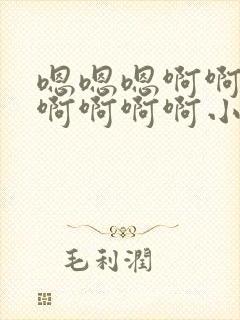 嗯嗯嗯啊啊
啊啊啊啊小
毛利潤